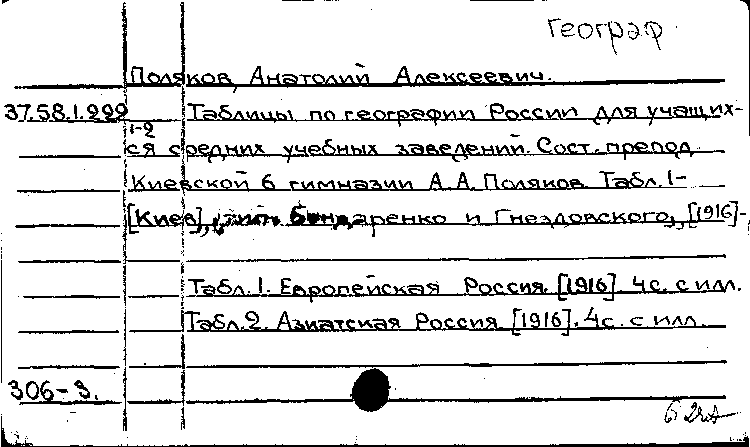 географ
Поляков, Анатолий Алексеевич.
37.58.1.229 Таблицы по географии России для учащих-
1-2
ся средних учебных заведений. Сост. препод.
Киевской 6 гимназии А.А. Поляков. Табл. 1-
[Киев], тип. Бондаренко и Гнездовского, [1916]-
Табл. 1. Европейская Россия. [1916]. 4с. с илл.
Табл. 2. Азиатская Россия. [1916]. 4с. с илл.
306-3.